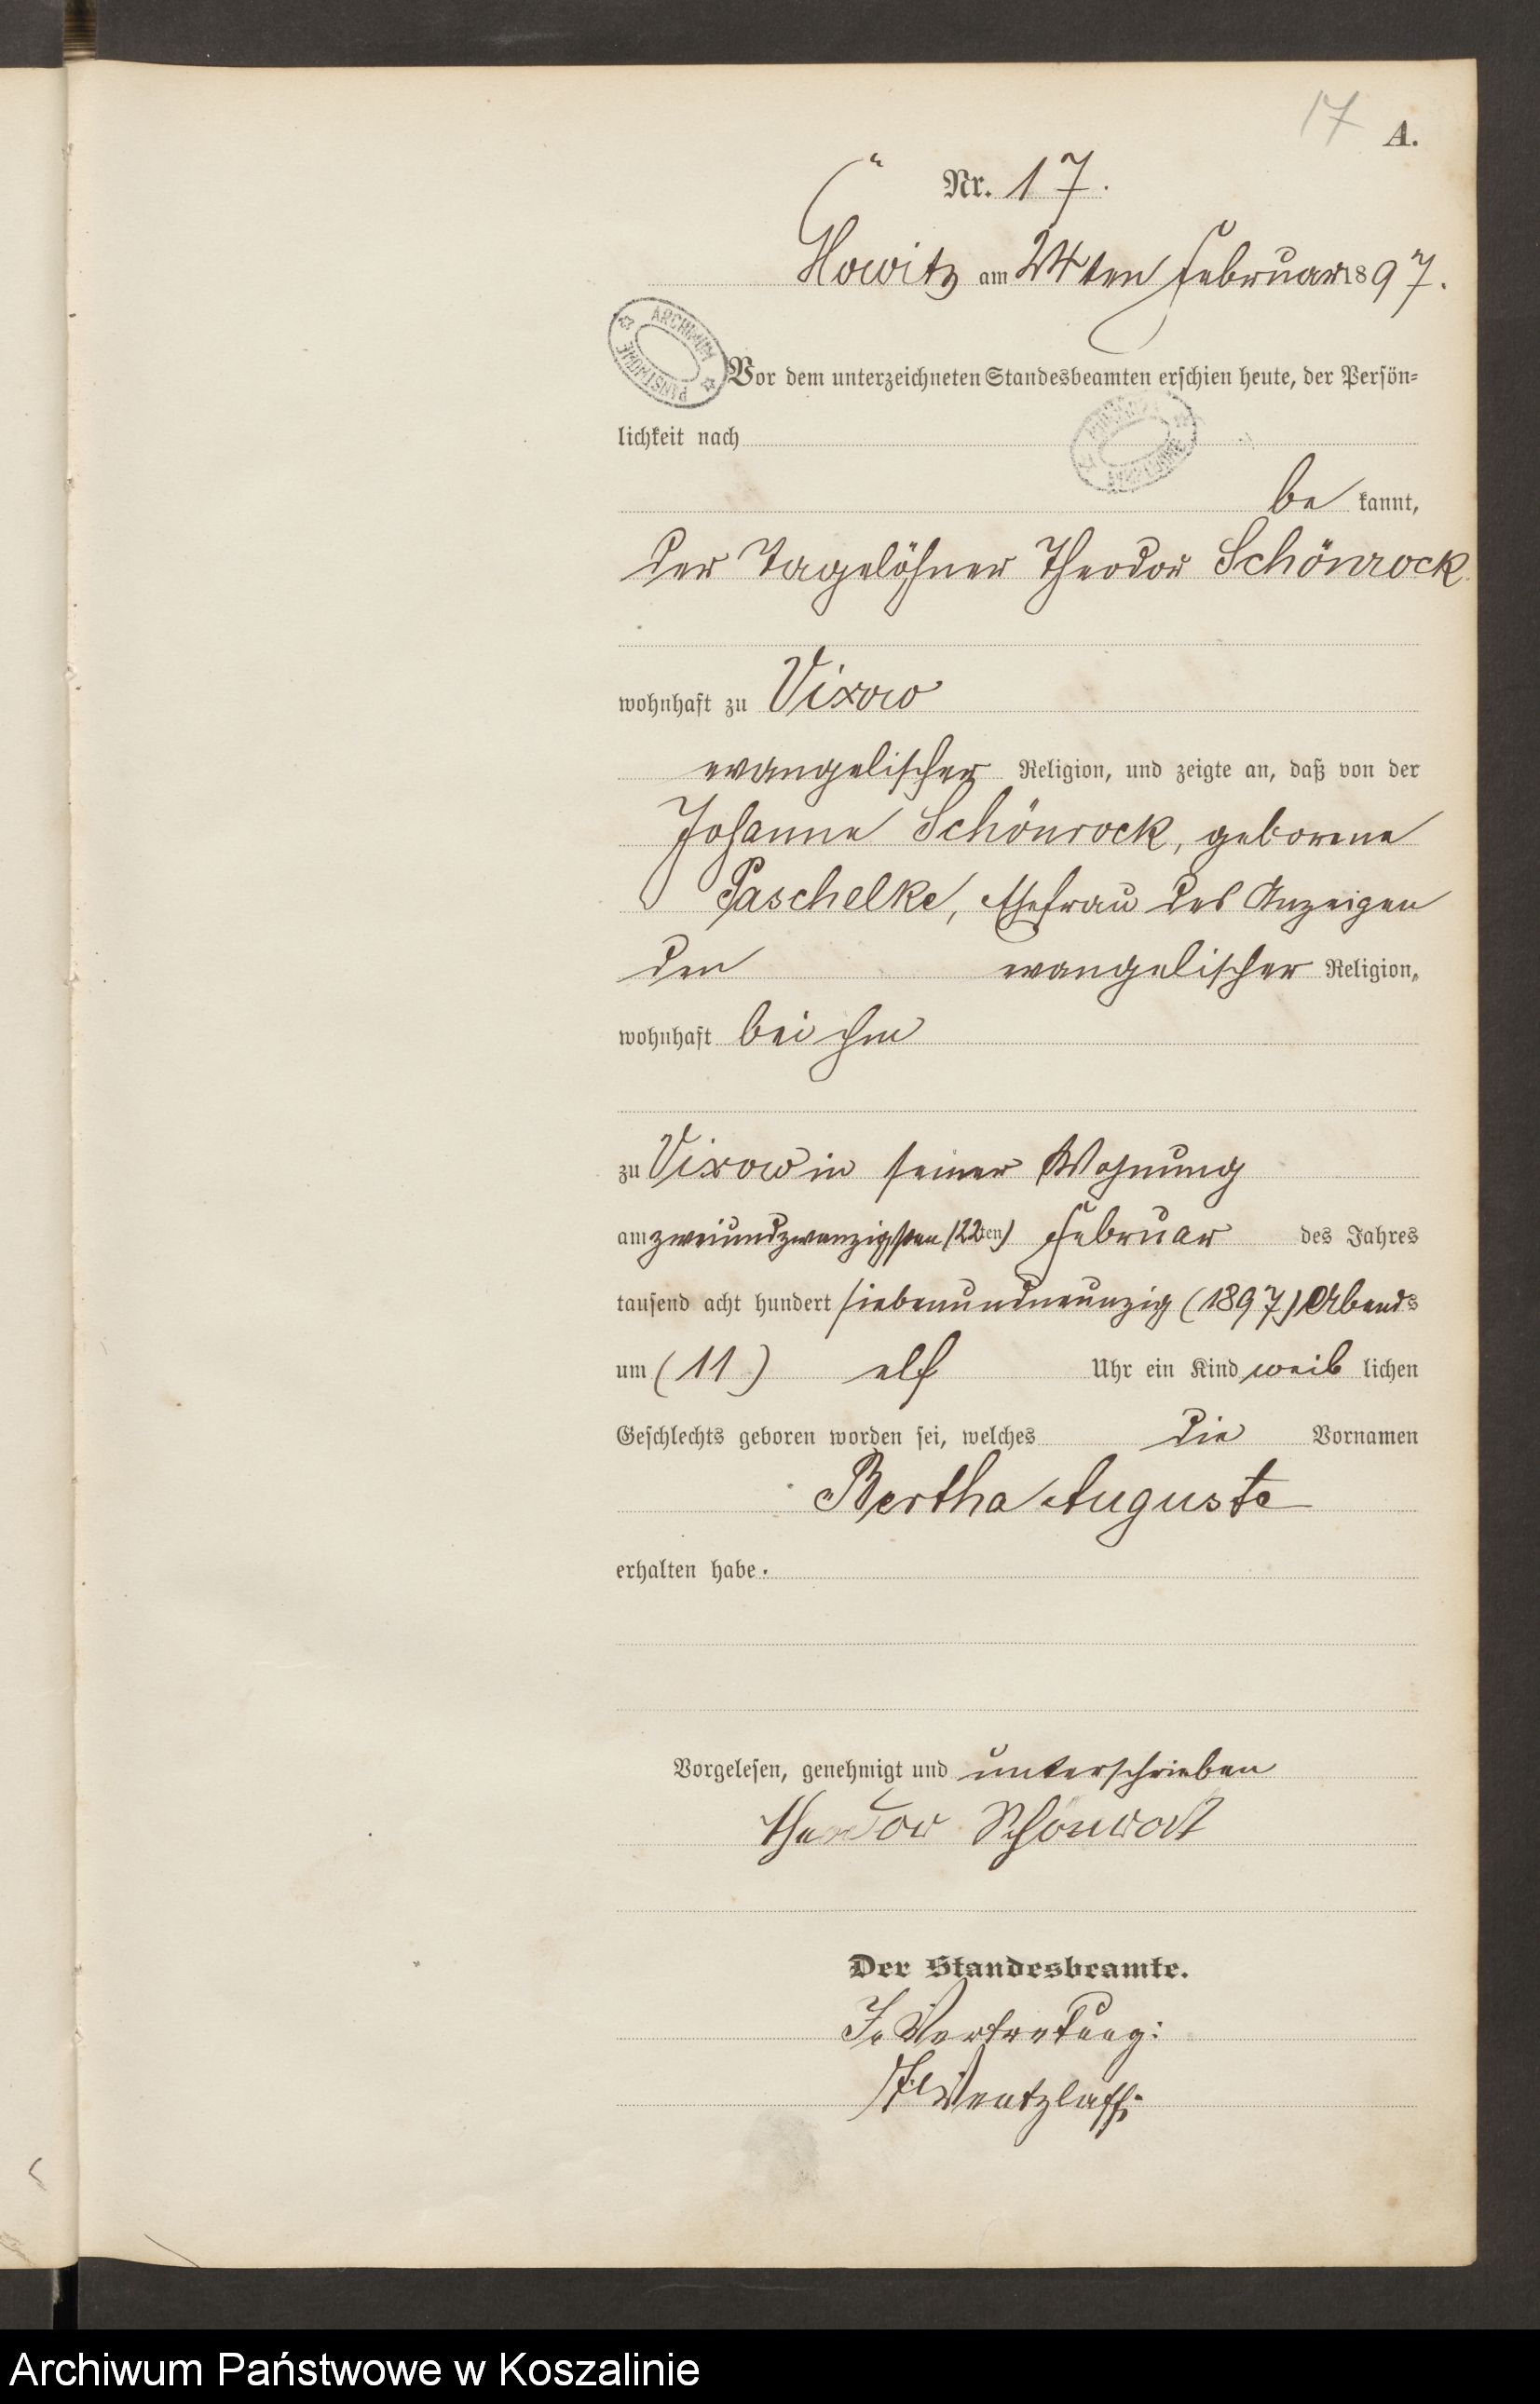 17 A.
Nr. 17.
Gowitz am 24ten Februar 1897.
ARCHIWUM PAŃSTWOWE
Vor dem unterzeichneten Standesbeamten erschien heute, der Persön=
lichkeit nach
be kannt,
der Tagelöhner Theodor Schönrock
wohnhaft zu Vixow
evangelischer Religion, und zeigte an, daß von der
Johanne Schönrock, geborene
Paschelke, Ehefrau des Anzeigen
den evangelischer Religion,
wohnhaft bei ihm
zu Vixow in seiner Wohnung
am zweiundzwanzigsten (22ten) Februar des Jahres
tausend acht hundert siebenundneunzig (1897) Abends
um (11) elf Uhr ein Kind weib lichen
Geschlechts geboren worden sei, welches die Vornamen
Bertha Auguste
erhalten habe.
Vorgelesen, genehmigt und unterschrieben
Theodor Schönrock
Der Standesbeamte.
In Vertretung:
Wentzlaff.
Archiwum Państwowe w Koszalinie